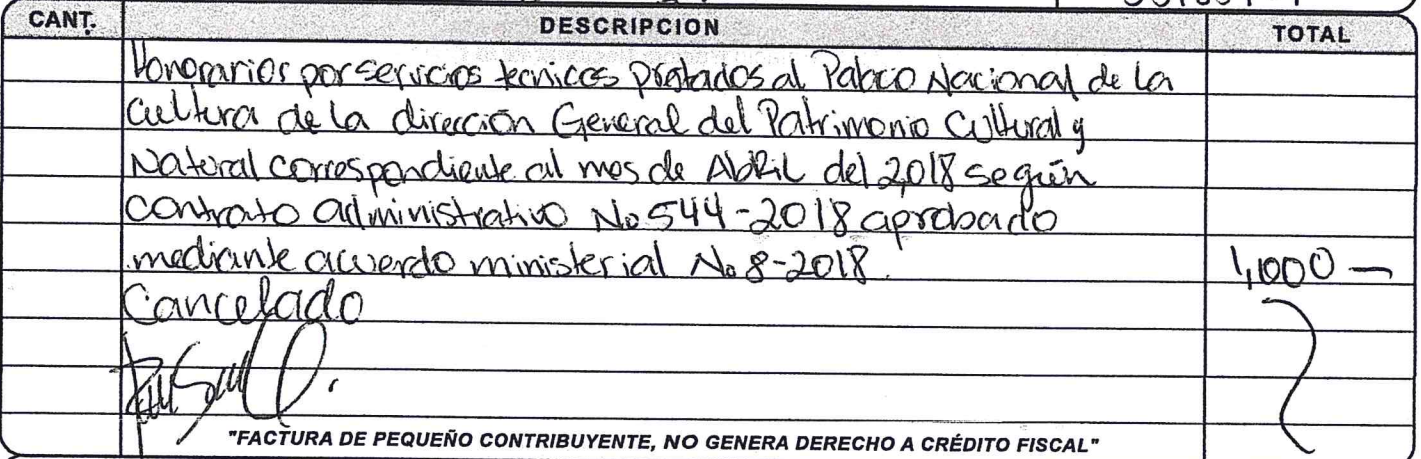 CANT. DESCRIPCION TOTAL
Honorarios por servicios tecnicos prstados al Palacio Nacional de la
Cultura de la dirección General del Patrimonio Cultural y
Natural correspondiente al mes de Abril del 2,018 según
contrato administrativo No 544-2018 aprobado
mediante acuerdo ministerial No 8-2018. 1,000 —
Cancelado
"FACTURA DE PEQUEÑO CONTRIBUYENTE, NO GENERA DERECHO A CRÉDITO FISCAL"